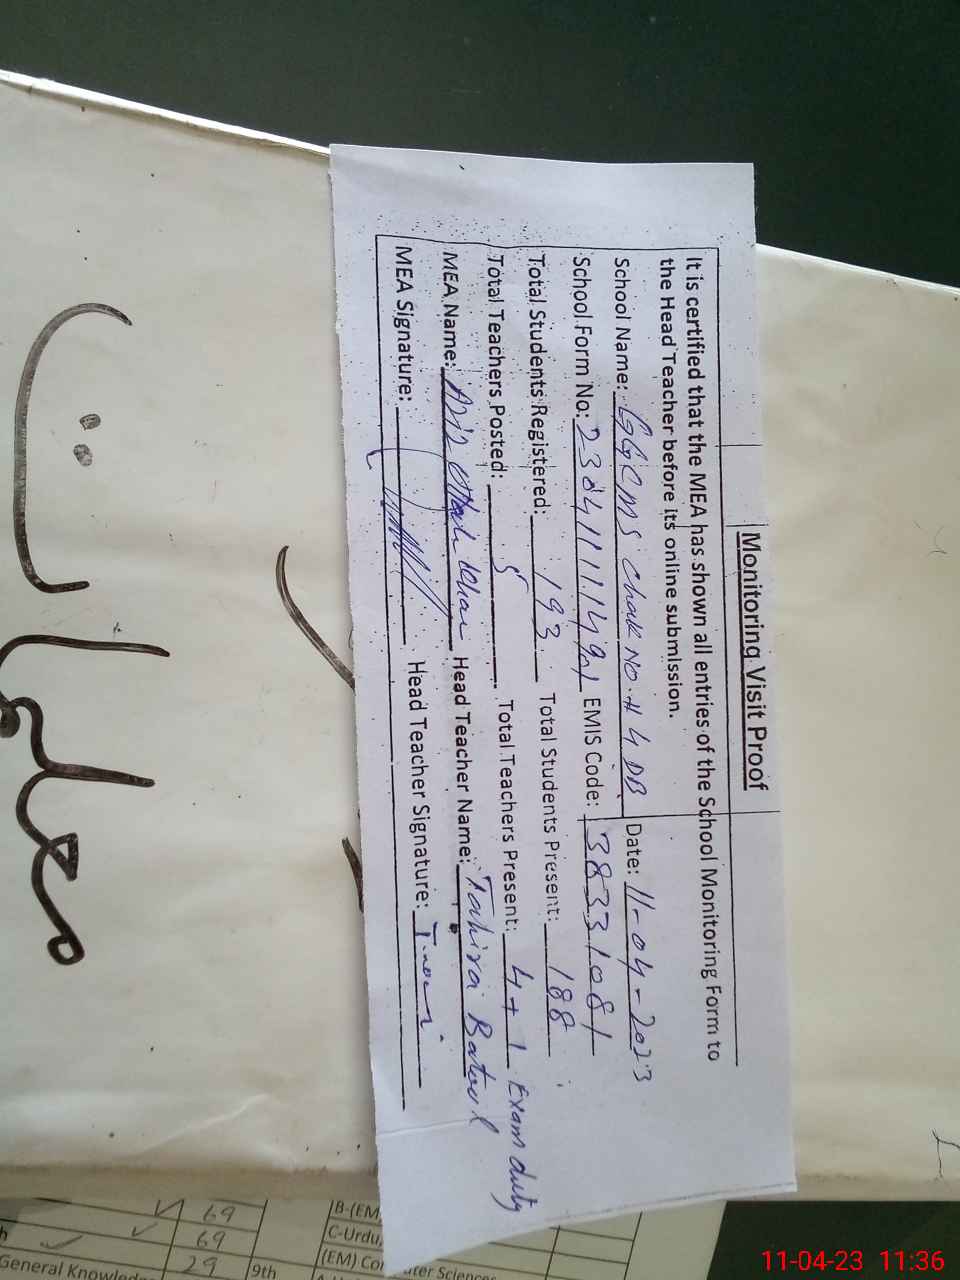 Monitoring Visit Proof
It is certified that the MEA has shown all entries of the School Monitoring Form to
the Head Teacher before its online submission.
School Name: GGCMS Chak No. 4 DB Date: 11-04-2023
School Form No: EMIS Code: 38331081
Total Students Registered: 193 Total Students Present: 188
Total Teachers Posted: 5 Total Teachers Present: 4+1 Exam duty
MEA Name: Khan Head Teacher Name: Tahira Batool
MEA Signature: Head Teacher Signature:
69 B-(EM)
69 C-Urdu,
(EM) Computer Sciences
General Knowled 29 9th
11-04-23 11:36